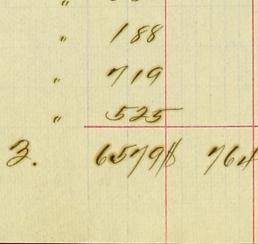 " 188
" 719
" 525
3. 6579 764